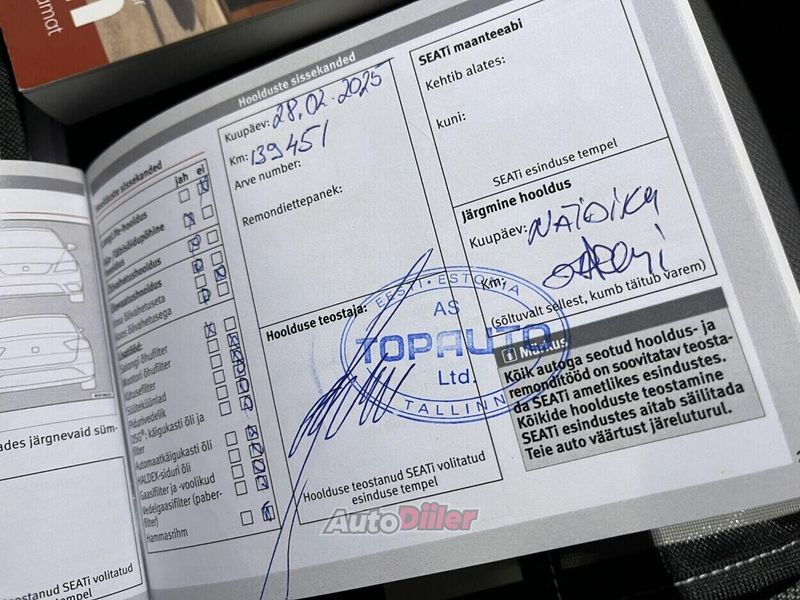 umat
Hoolduste sissekanded
Hoolduste sissekanded
jah ei
LongLife-hooldus
Aja-/läbisõidupõhine
hooldus
Õlivahetushooldus
Ülevaatushooldus
ilma õlivahetuseta
koos õlivahetusega
Lisatööd:
Salongi õhufilter
Mootori õhufilter
Kütusefilter
Süüteküünlad
Pidurivedelik
DSG®- käigukasti õli ja
filter
Automaatkäigukasti õli
HALDEX-siduri õli
Gaasifilter ja -voolikud
Vedelgaasifilter (paber-
filter)
Hammasrihm
Kuupäev: 28.02.2025
Km: 139451
Arve number:
Remondiettepanek:
Hoolduse teostaja:
Hoolduse teostanud SEATi volitatud
esinduse tempel
SEATi maanteeabi
Kehtib alates:
kuni:
SEATi esinduse tempel
Järgmine hooldus
Kuupäev: NÄIDIKU
Km:
(sõltuvalt sellest, kumb täitub varem)
EESTI • ESTONIA
AS
TOPAUTO
Ltd.
TALLINN
i Märkus
Kõik autoga seotud hooldus- ja
remonditööd on soovitatav teosta-
da SEATi ametlikes esindustes.
Kõikide hoolduste teostamine
SEATi esindustes aitab säilitada
Teie auto väärtust järeluturul.
ades järgnevaid süm-
teostanud SEATi volitatud
tempel
AutoDiiler